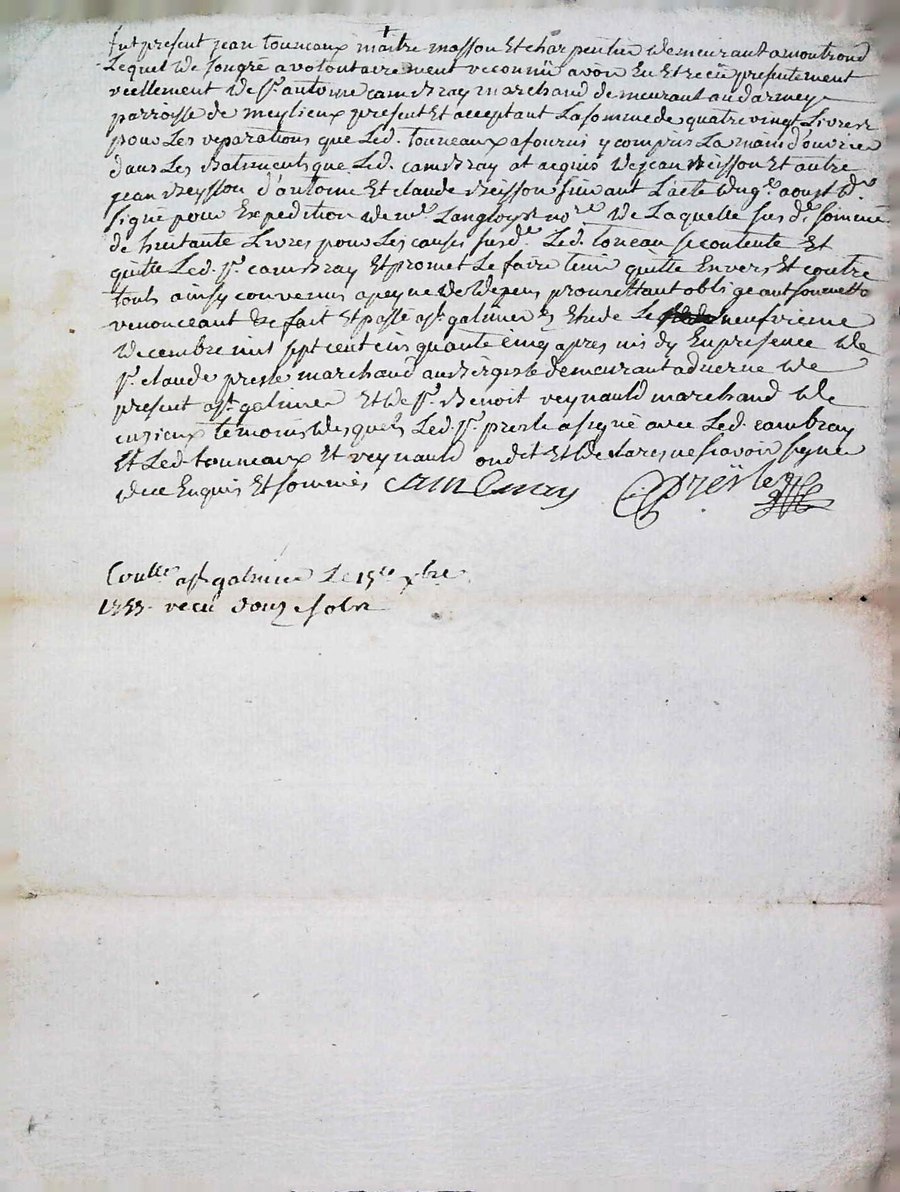 fut present jean tonneaux maitre masson Et charpentier demeurant a montrond
Lequel de son gré a volontairement reconnü avoir Eu Et reçü presentement
reellement de sr. antoine cambray marchand demeurant au darmey
parroisse de meylieux present Et acceptant La somme de quatre vingt Livres
pour Les reparations que Led. tonneaux a fourni y compris La main d'ouvrier
dans Les Batiments que Led. cambray at acquis de jean Beisson Et autre
jean Beysson d'antoine Et claude Beisson suivant L'acte du 9e. aoust dr.
signé pour Expedition de me. Langloys nore. de Laquelle susde. somme
de huitante Livres pour Les causes susde. Led. toneau se contente Et
quitte Led. sr. cambray Et promet Le faire tenir quitte Envers Et contre
touts ainsy convenus a peyne de depens promettant obligeant soumetto
renonceant &c fait Et passé a st. galmier Etude Le neufvieme
decembre mil sept cent cinquante cinq apres midy En presence de
sr. claude presle marchand demeurant a de
present a st. galmier Et de sr. Benoit reynauld marchand de
cuzieux temoins desquels Led. sr. presle a signé avec Led. cambray
Et Led. tonneaux Et reynauld ont dit Et declares ne scavoir signer
de ce Enquis Et sommés cambray C presle
Conlle. a st. galmier Le 15e xbre
1755. recu douze sols